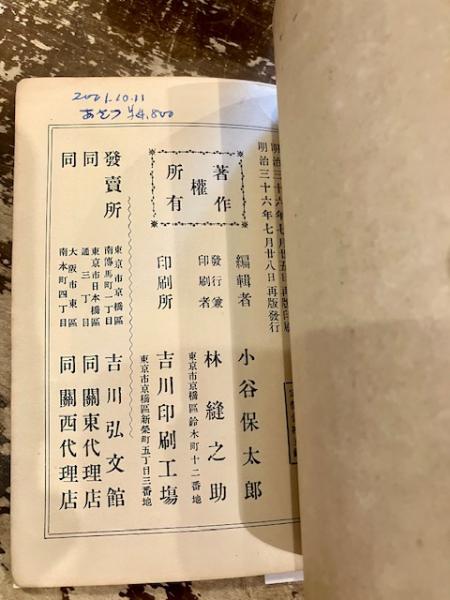 2001.10.11
あきつ ¥4,800
明治三十六年七月廿五日再版印刷
明治三十六年七月廿八日再版發行
著作權所有
編輯者 小谷保太郎
發行兼印刷者 林縫之助
東京市京橋區鈴木町十二番地
印刷所 吉川印刷工塲
東京市京橋區新榮町五丁目三番地
發賣所 東京市京橋區南傳馬町一丁目 吉川弘文館
同 東京市日本橋區通三丁目 同關東代理店
同 大阪市東區南本町四丁目 同關西代理店